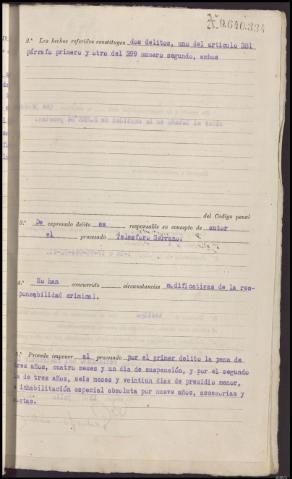 Nº 0.640.334
2.º Los hechos referidos constituyen dos delitos, uno del artículo 381
párrafo primero y otro del 399 número segundo, ambos
del Código penal
3.º De expresado delito es responsable en concepto de autor
el procesado Telesforo
4.º No han concurrido circunstancias modificativas de la res-
ponsabilidad criminal.
5.º Procede imponer al procesado por el primer delito la pena de
tres años, cuatro meses y un día de suspensión, y por el segundo
la de tres años, seis meses y veintiun días de presidio menor,
inhabilitación especial absoluta por nueve años, accesorias y
costas.